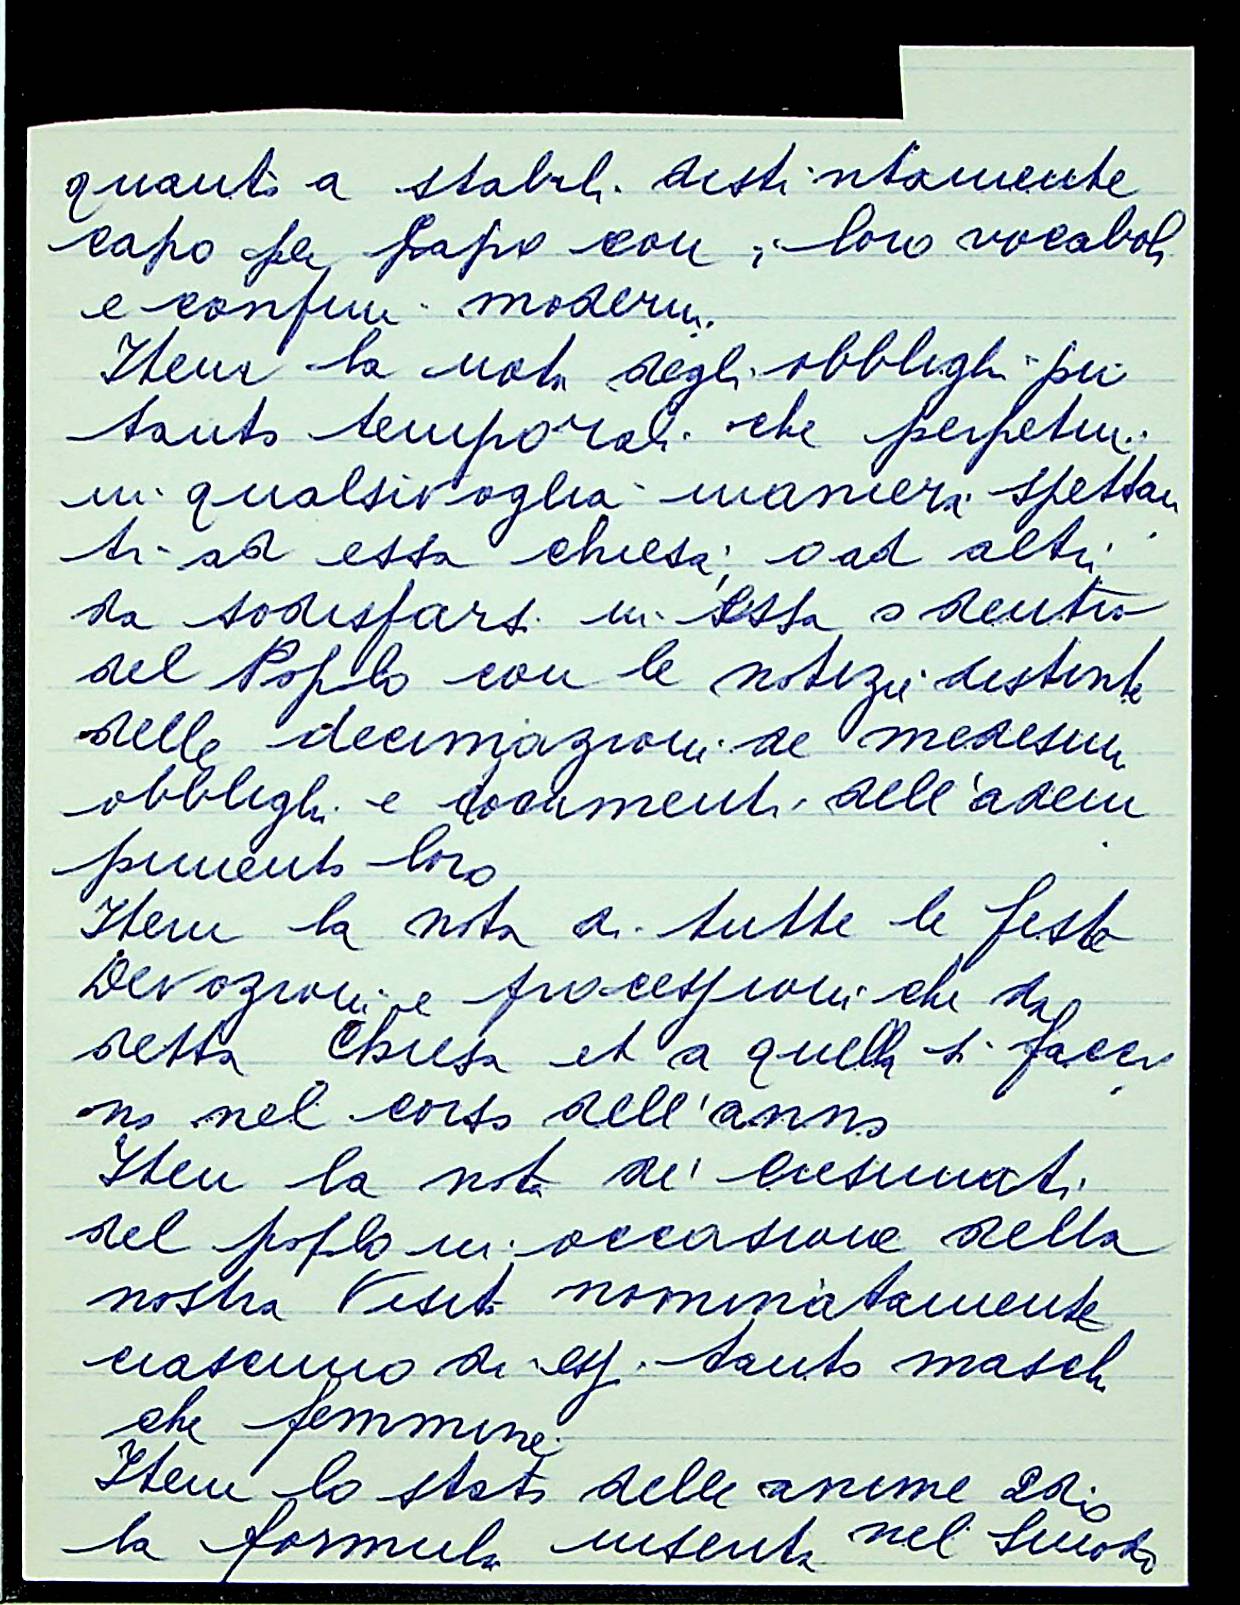 quanto a stabili distintamente
capo per Capo con i loro vocaboli
e confini moderni.
Item la nota degli obblighi pii
tanto temporali che perpetui
in qualsivoglia maniera spettan
ti ad essa chiesa, o ad altri
da sodisfarsi in essa o dentro
del Popolo con le notizie distinte
delle decimazioni de medesimi
obblighi e documenti dell'adem
pimento loro
Item la nota di tutte le feste
Devozioni e processioni che da
detta Chiesa et a quella si facci
no nel corso dell'anno
Item la nota de' Cresimati
del popolo in occasione della
nostra Visita nominatamente
ciascuno di essi tanto maschi
che femmine
Item lo stato delle anime
la formula inserita nel Sinodo